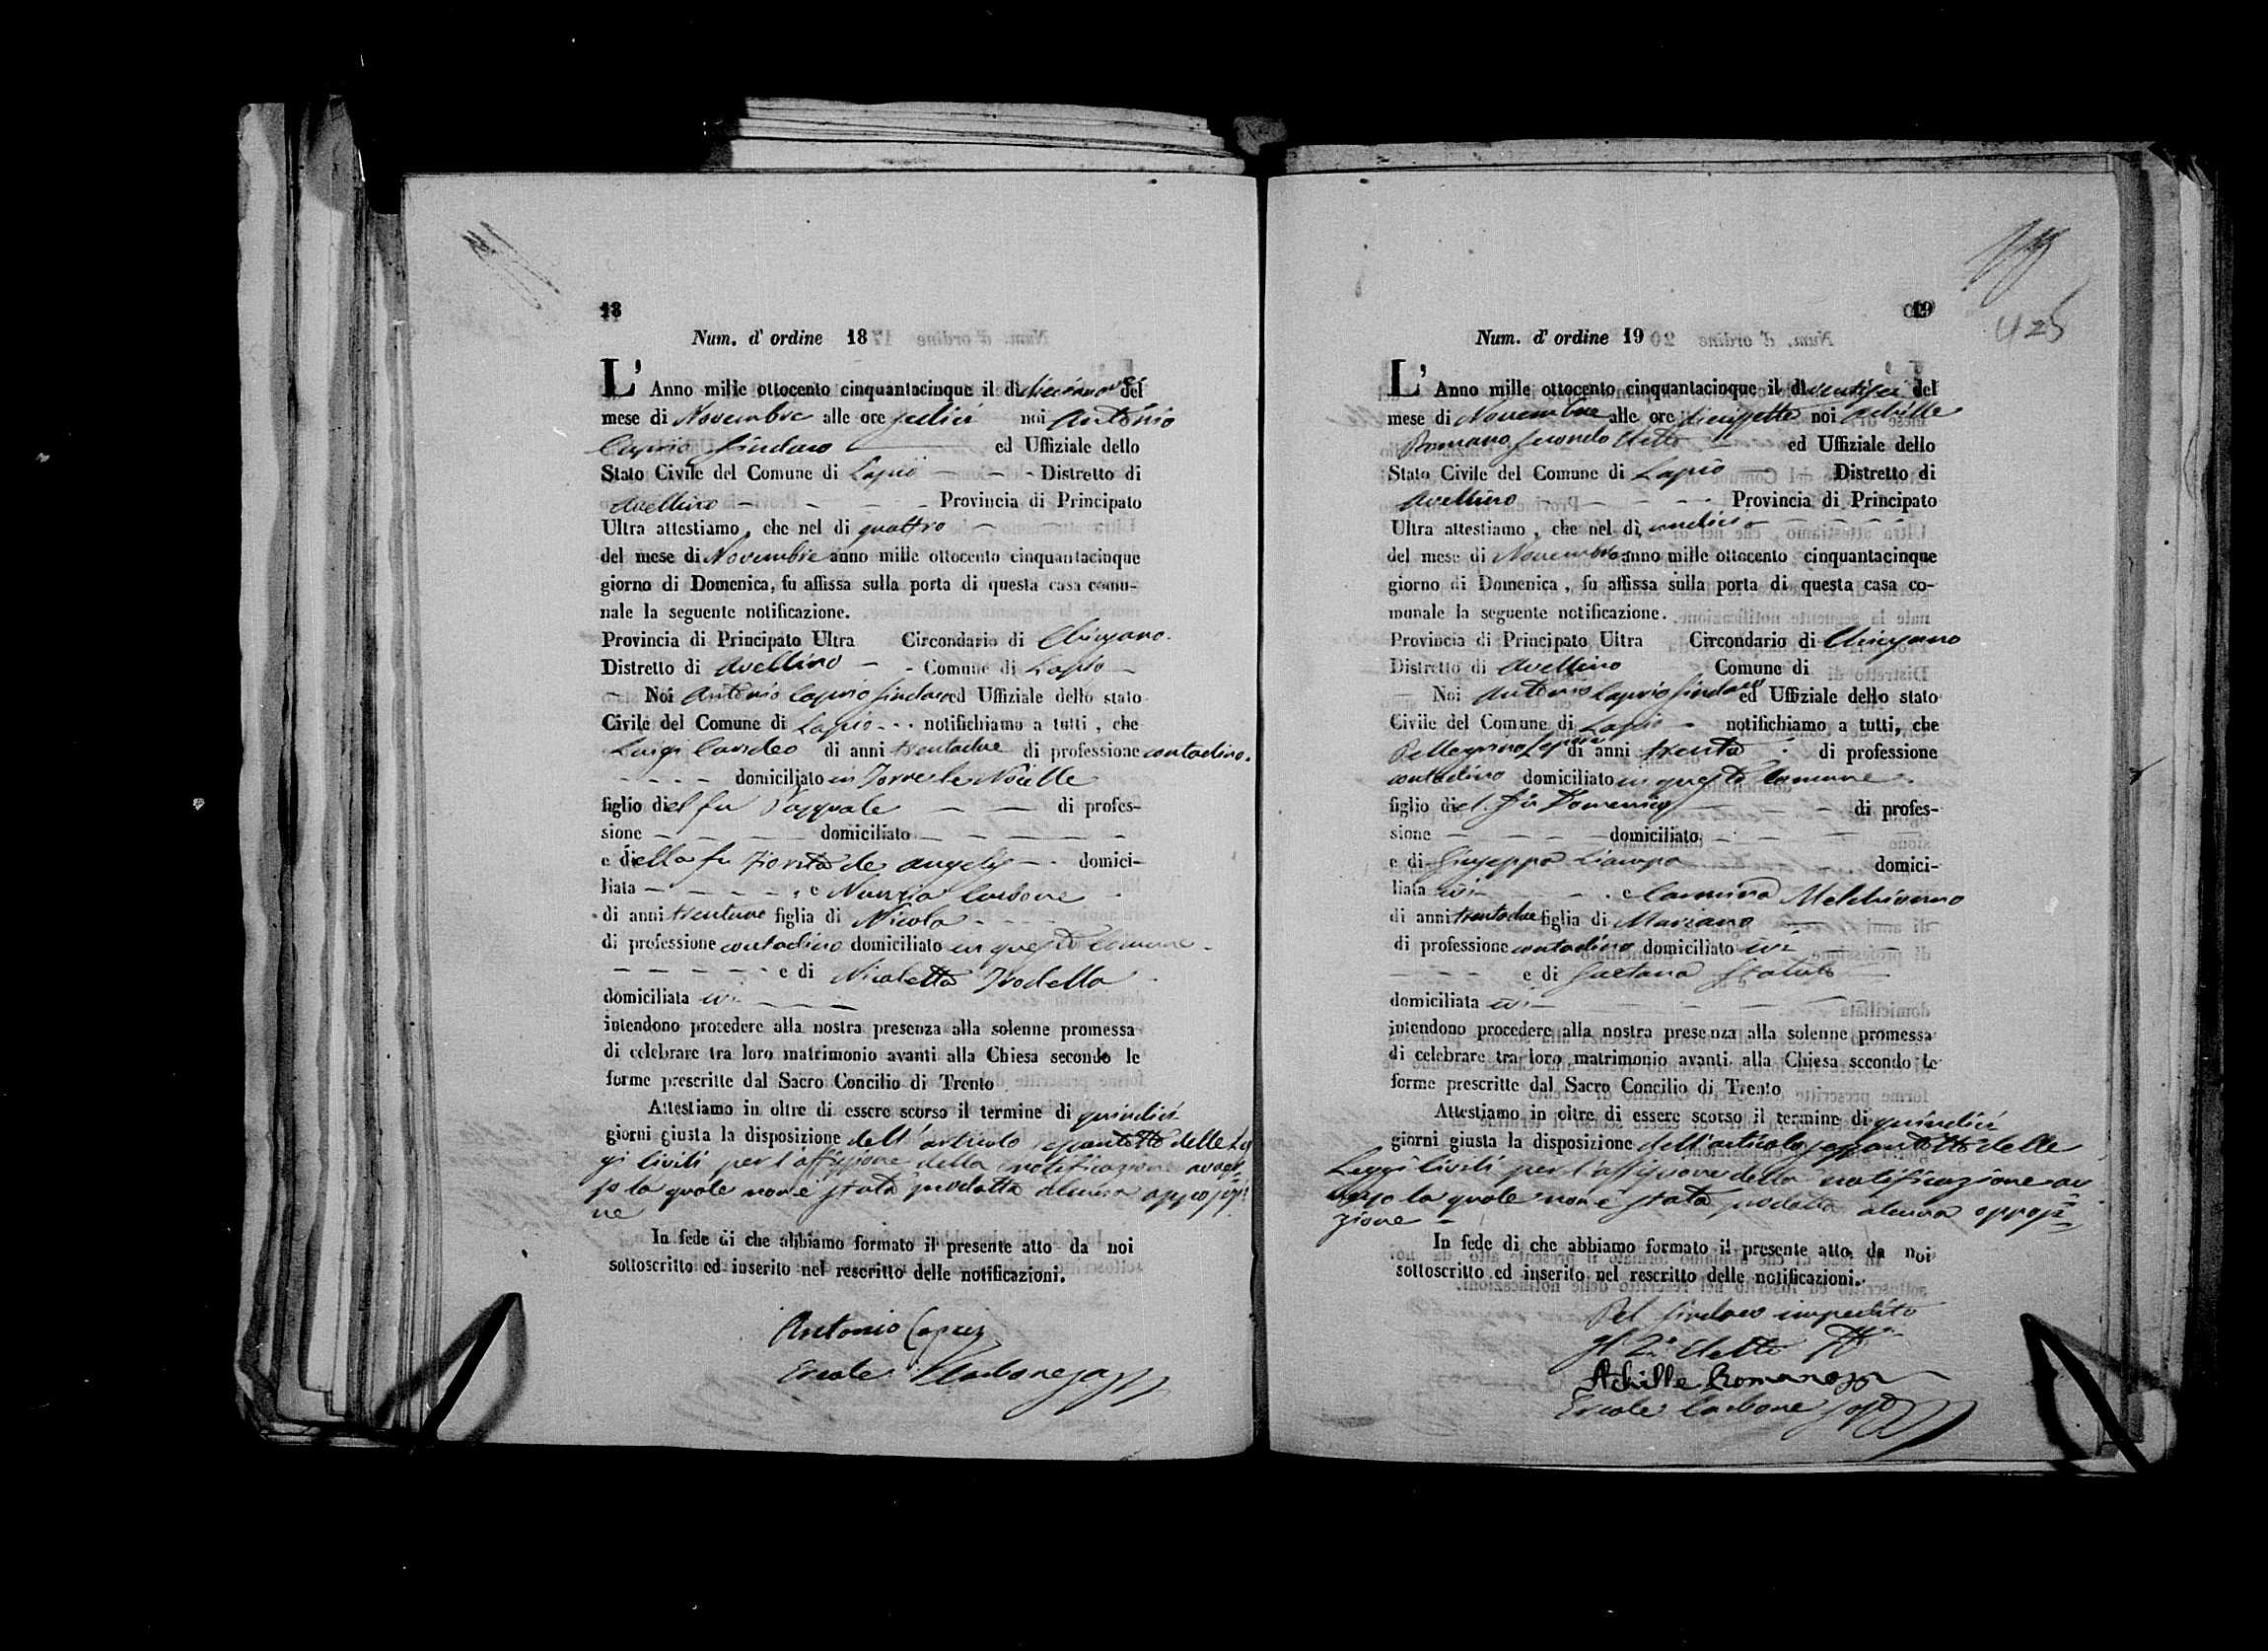 18
Num. d' ordine 18
L' Anno mille ottocento cinquantacinque il di diecinove del
mese di Novembre alle ore sedici noi Antonio
Caprio Sindaco ed Uffiziale dello
Stato Civile del Comune di Lapio - - - Distretto di
Avellino - - - - Provincia di Principato
Ultra attestiamo, che nel di quattro -
del mese di Novembre anno mille ottocento cinquantacinque
giorno di Domenica, fu affissa sulla porta di questa casa comu-
nale la seguente notificazione.
Provincia di Principato Ultra Circondario di Chiusano.
Distretto di Avellino - - Comune di Lapio -
- Noi Antonio Caprio Sindaco ed Uffiziale dello stato
Civile del Comune di Lapio - - - notifichiamo a tutti, che
Luigi di anni trentadue di professione contadino.
- - - - domiciliato in Torre le Nocelle
figlio del fu Pasquale - - di profes-
sione - - - domiciliato - - - -
e della fu de Angelis - - domici-
liata - - - - e Nunzia Carbone
di anni trentuno figlia di Nicola - - -
di professione contadino domiciliato in questo Comune -
- - - - - e di Nicoletta
domiciliata ivi - - -
intendono procedere alla nostra presenza alla solenne promessa
di celebrare tra loro matrimonio avanti alla Chiesa secondo le
forme prescritte dal Sacro Concilio di Trento
Attestiamo in oltre di essere scorso il termine di quindici
giorni giusta la disposizione dell'articolo sessantotto delle Leg
gi Civili per l'affissione della notificazione avver
so la quale non è stata prodotta alcuna opposizio
ne
In fede di che abbiamo formato il presente atto da noi
sottoscritto ed inserito nel rescritto delle notificazioni.
Antonio Caprio
Ercole Carbone
19
425
Num. d' ordine 19
L' Anno mille ottocento cinquantacinque il di ventisei del
mese di Novembre alle ore diecissette noi Achille
Romano secondo Eletto - ed Uffiziale dello
Stato Civile del Comune di Lapio - Distretto di
Avellino - - - - Provincia di Principato
Ultra attestiamo, che nel dì undici - - - -
del mese di Novembre anno mille ottocento cinquantacinque
giorno di Domenica, fu affissa sulla porta di questa casa co-
munale la seguente notificazione.
Provincia di Principato Ultra Circondario di Chiusano
Distretto di Avellino Comune di
- Noi Antonio Caprio Sindaco ed Uffiziale dello stato
Civile del Comune di Lapio - notifichiamo a tutti, che
Pellegrino di anni trenta - di professione
contadino domiciliato in questo Comune -
figlio del fu Domenico - - - di profes-
sione - - - - domiciliato - - -
e di Giuseppa Ciampa domici-
liata ivi - - - e Carmina Melchionno
di anni trentadue figlia di Mariano -
di professione contadino domiciliato ivi - -
- - - - e di Gaetana
domiciliata ivi - - - -
intendono procedere alla nostra presenza alla solenne promessa
di celebrare tra loro matrimonio avanti alla Chiesa secondo le
forme prescritte dal Sacro Concilio di Trento
Attestiamo in oltre di essere scorso il termine di quindici
giorni giusta la disposizione dell'articolo sessantotto delle
Leggi Civili per l'affissione della notificazione av
verso la quale non è stata prodotta alcuna opposi=
zione -
In fede di che abbiamo formato il presente atto da noi
sottoscritto ed inserito nel rescritto delle notificazioni.
Pel Sindaco impedito
Il 2° Eletto
Achille Romano
Ercole Carbone